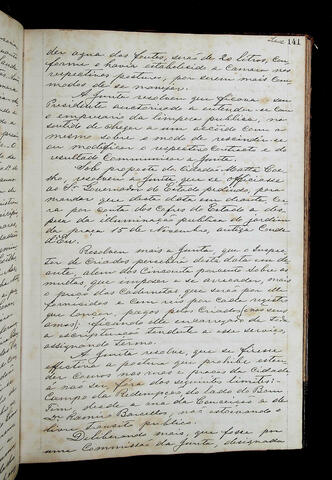 141
der agua das fontes, será de 20 litros, con
forme o havia estabelecido a Camara nas
respectivas posturas, por serem mais com
modos de se manejar.
A Junta resolveu que ficava seu
Presidente auctorisado a entender-se com
o emprezario da limpeza publica, no
sentido de chegar a um accordo com os
mesmo sobre o modo de rescindir-se
ou modificar o respectivo contracto e do
resultado communicar a Junta.
Sob proposta do Cidadão Mattos Coe
lho, resolveu a Junta que se officiasse
ao Sr. Governador do Estado pedindo, para
mandar que desta data em diante, cor
ra por conta dos Cofres do Estado a des
pesa da illuminação publica do jardim
da praça 15 de Novembro, antiga Conde
d'Eu.
Resolveu mais a Junta, que o Inspec
tor de Criados perceberá desta data em di
ante, alem dos cincoenta por cento sobre as
multas, que impozer e se arrecadar, mais
o preço das cadernetas que serão por elle
fornecidas e cem reis por cada registro
que lançar, pagos pelos criados
amos); ficando elle encarregado de toda
a escripturação tendente a esse serviço,
assignando termo.
A Junta resolve, que se fizesse
effectiva a postura que prohibe esten
der couros nas ruas e praças da Cidade
a não ser, fóra dos seguintes limites:
Campo da Redempção do lado do Bom
Fim, desde a rua da Conceição a de
Dr. Ramiro Barcellos, não estorvando o
livre transito publico.
Deliberando mais, que fosse por
uma Commissão da Junta, designada